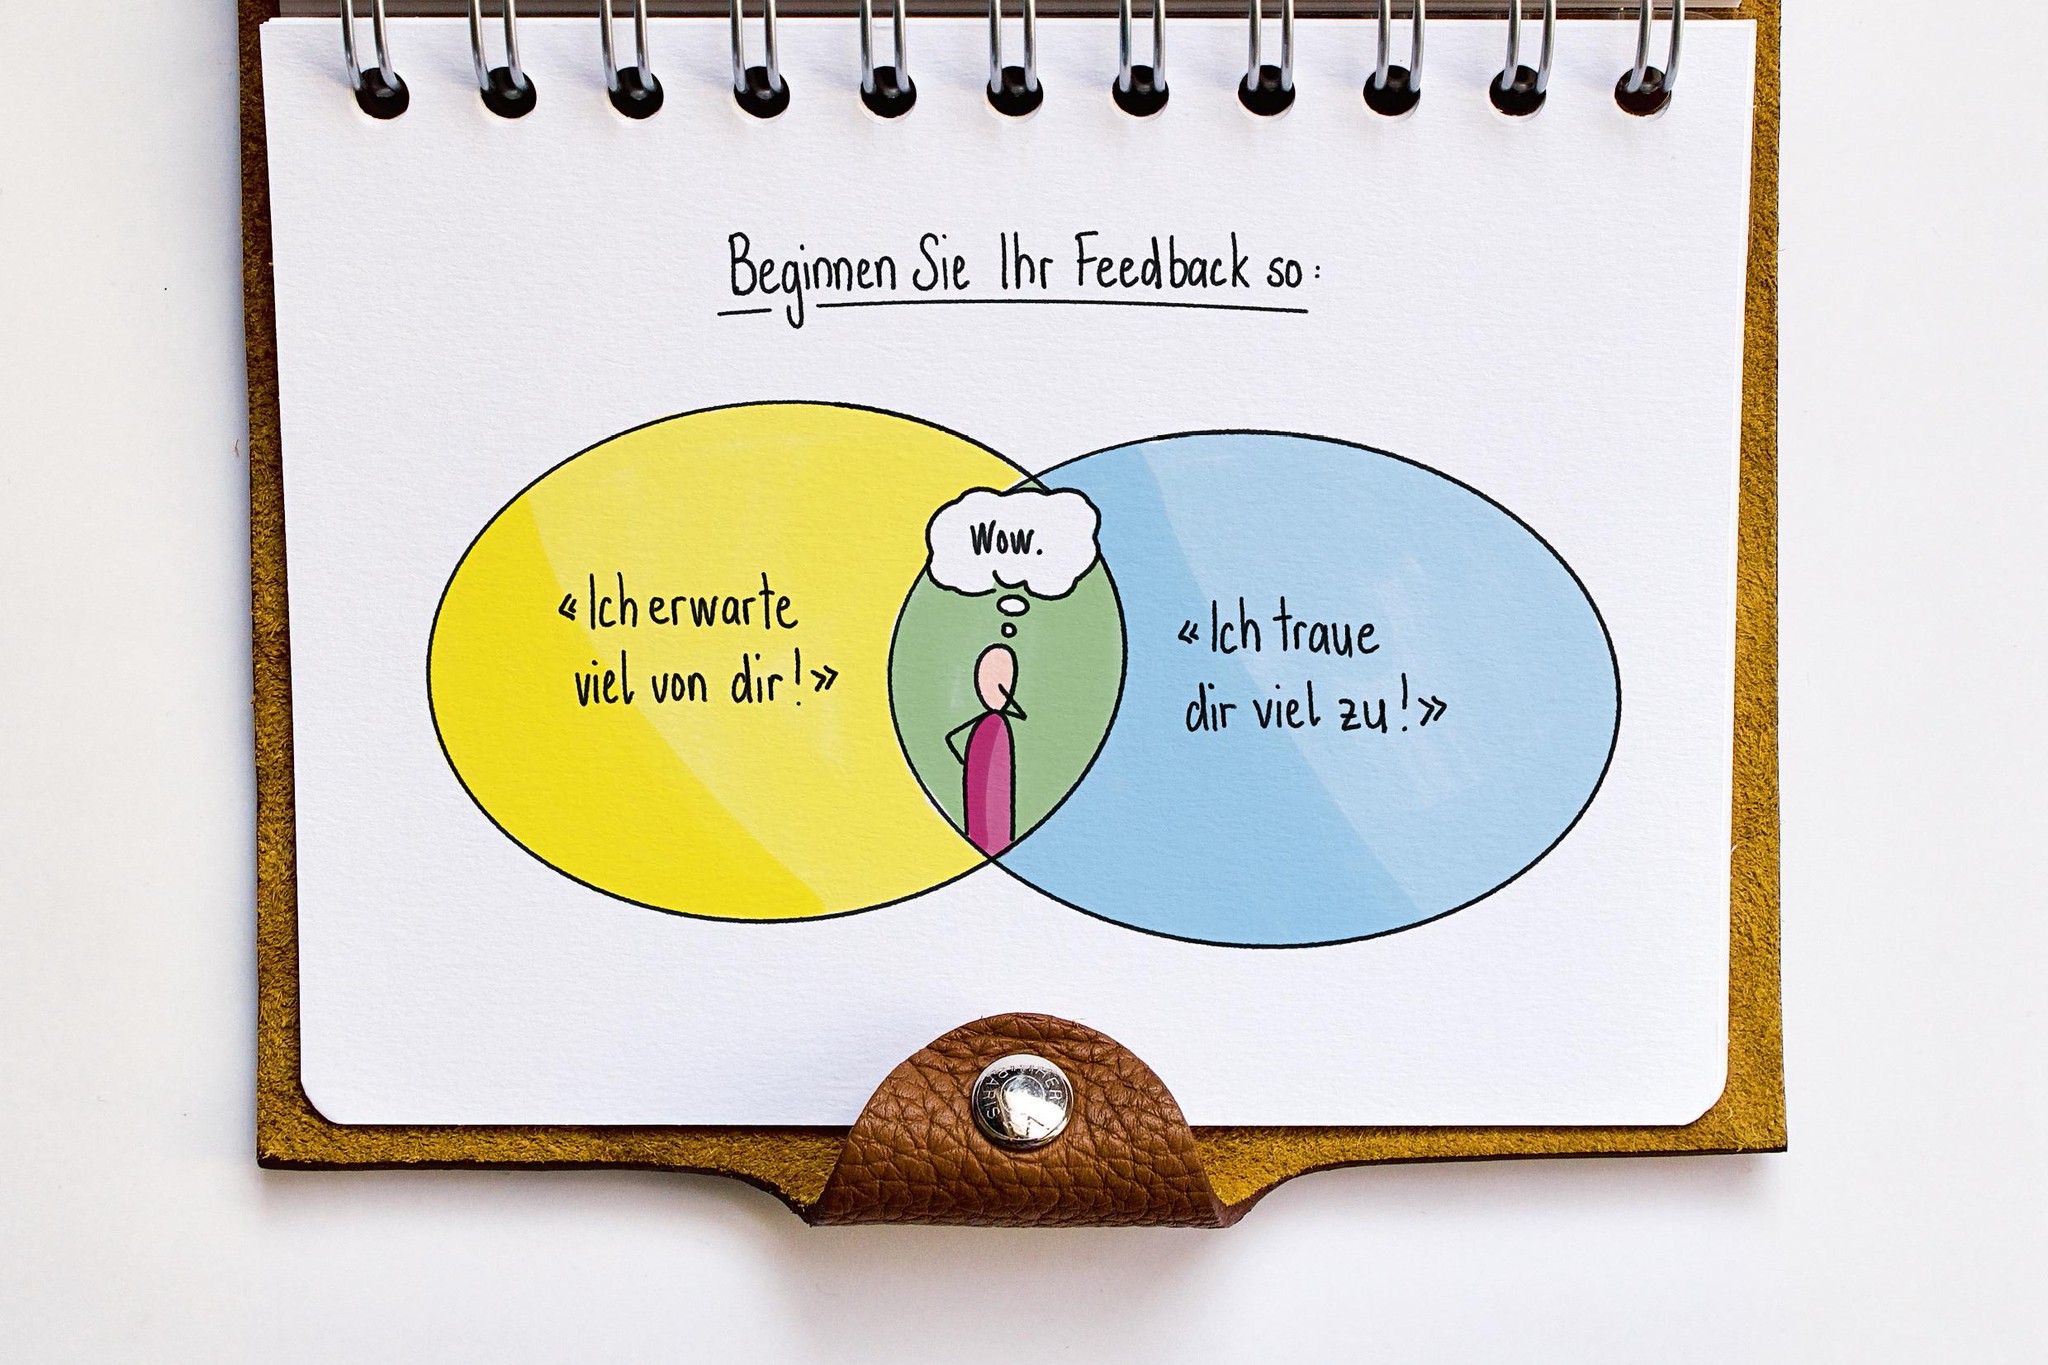 Beginnen Sie Ihr Feedback so:
Wow.
«Ich erwarte
viel von dir!»
«Ich traue
dir viel zu!»